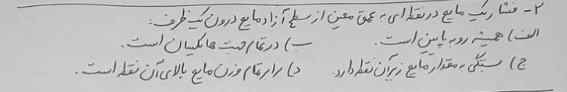 ۲- فشار یک مایع در نقطه ای به عمق معین از سطح آزاد مایع درون یک ظرف:
الف) همیشه رو به پایین است. ب) در تمام جهت ها یکسان است.
ج) بستگی به مقدار مایع زیر آن نقطه دارد. د) برابر تمام وزن مایع بالای آن نقطه است.